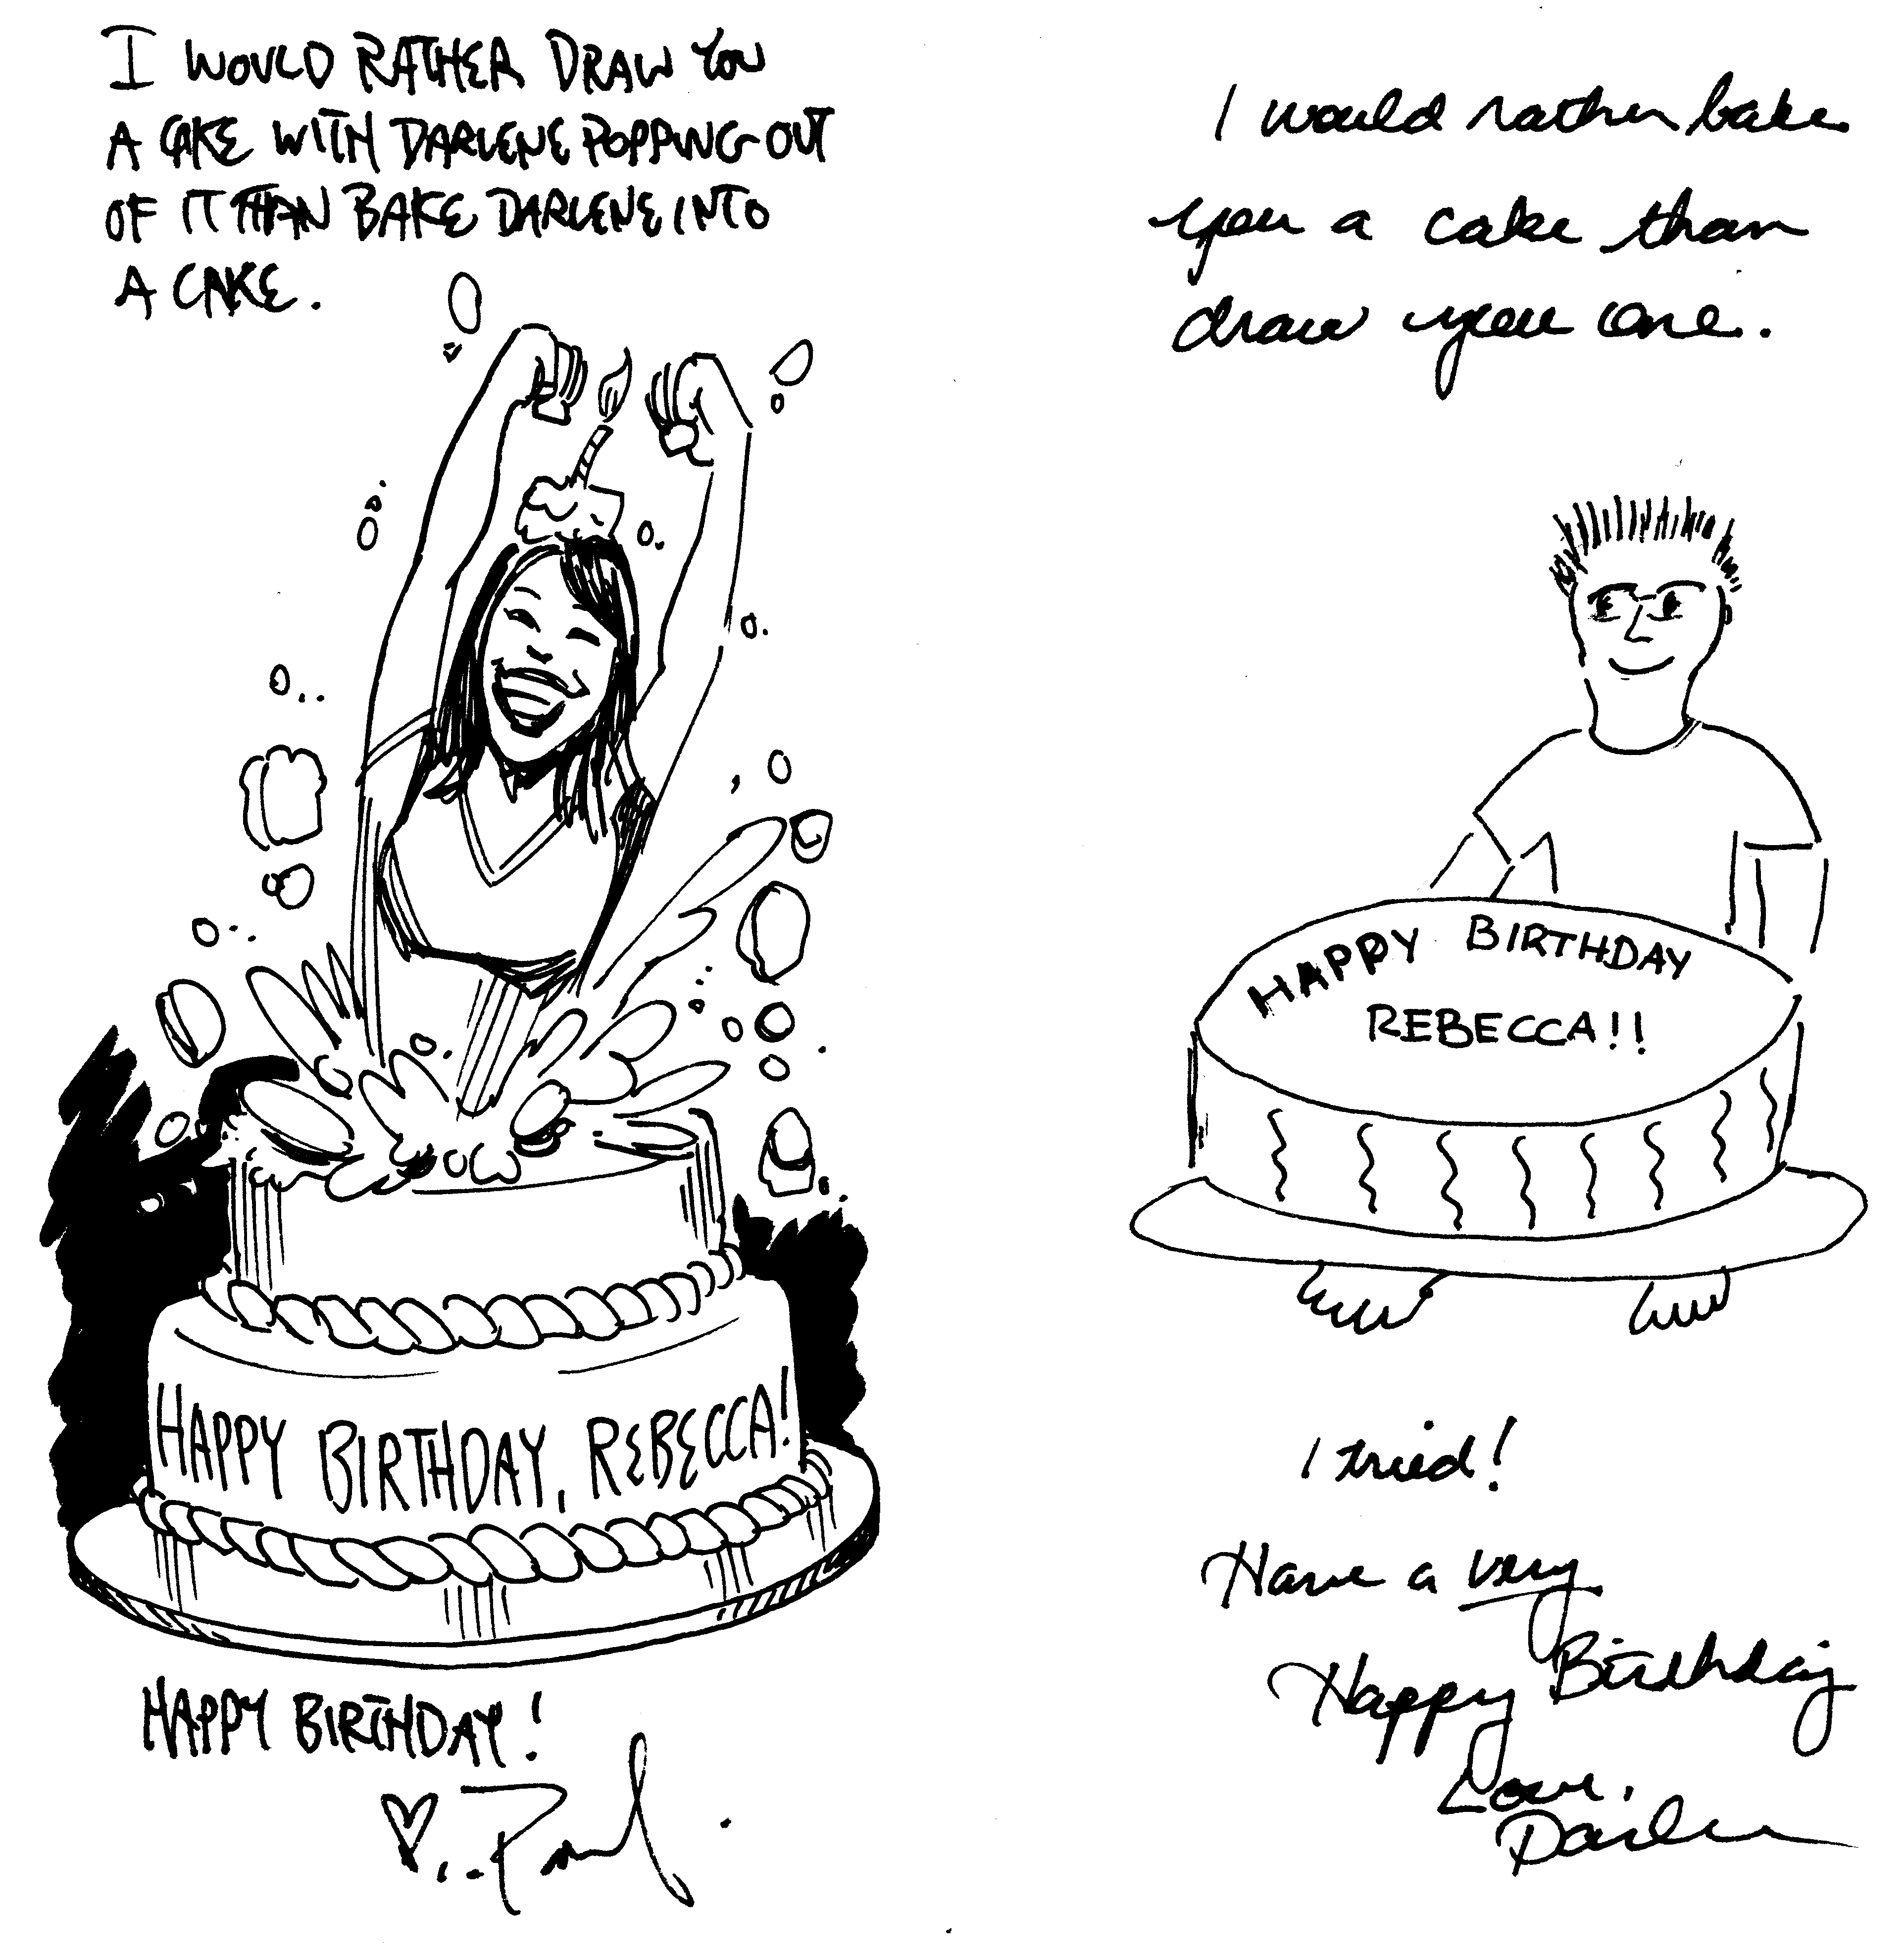 I WOULD RATHER DRAW YOU
A CAKE WITH DARLENE POPPING OUT
OF IT THAN BAKE DARLENE INTO
A CAKE.
HAPPY BIRTHDAY, REBECCA!
HAPPY BIRTHDAY!
Paul
I would rather bake
you a cake than
draw you one.
HAPPY BIRTHDAY
REBECCA!!
I tried!
Have a very
Happy Birthday
Love,
Darlene